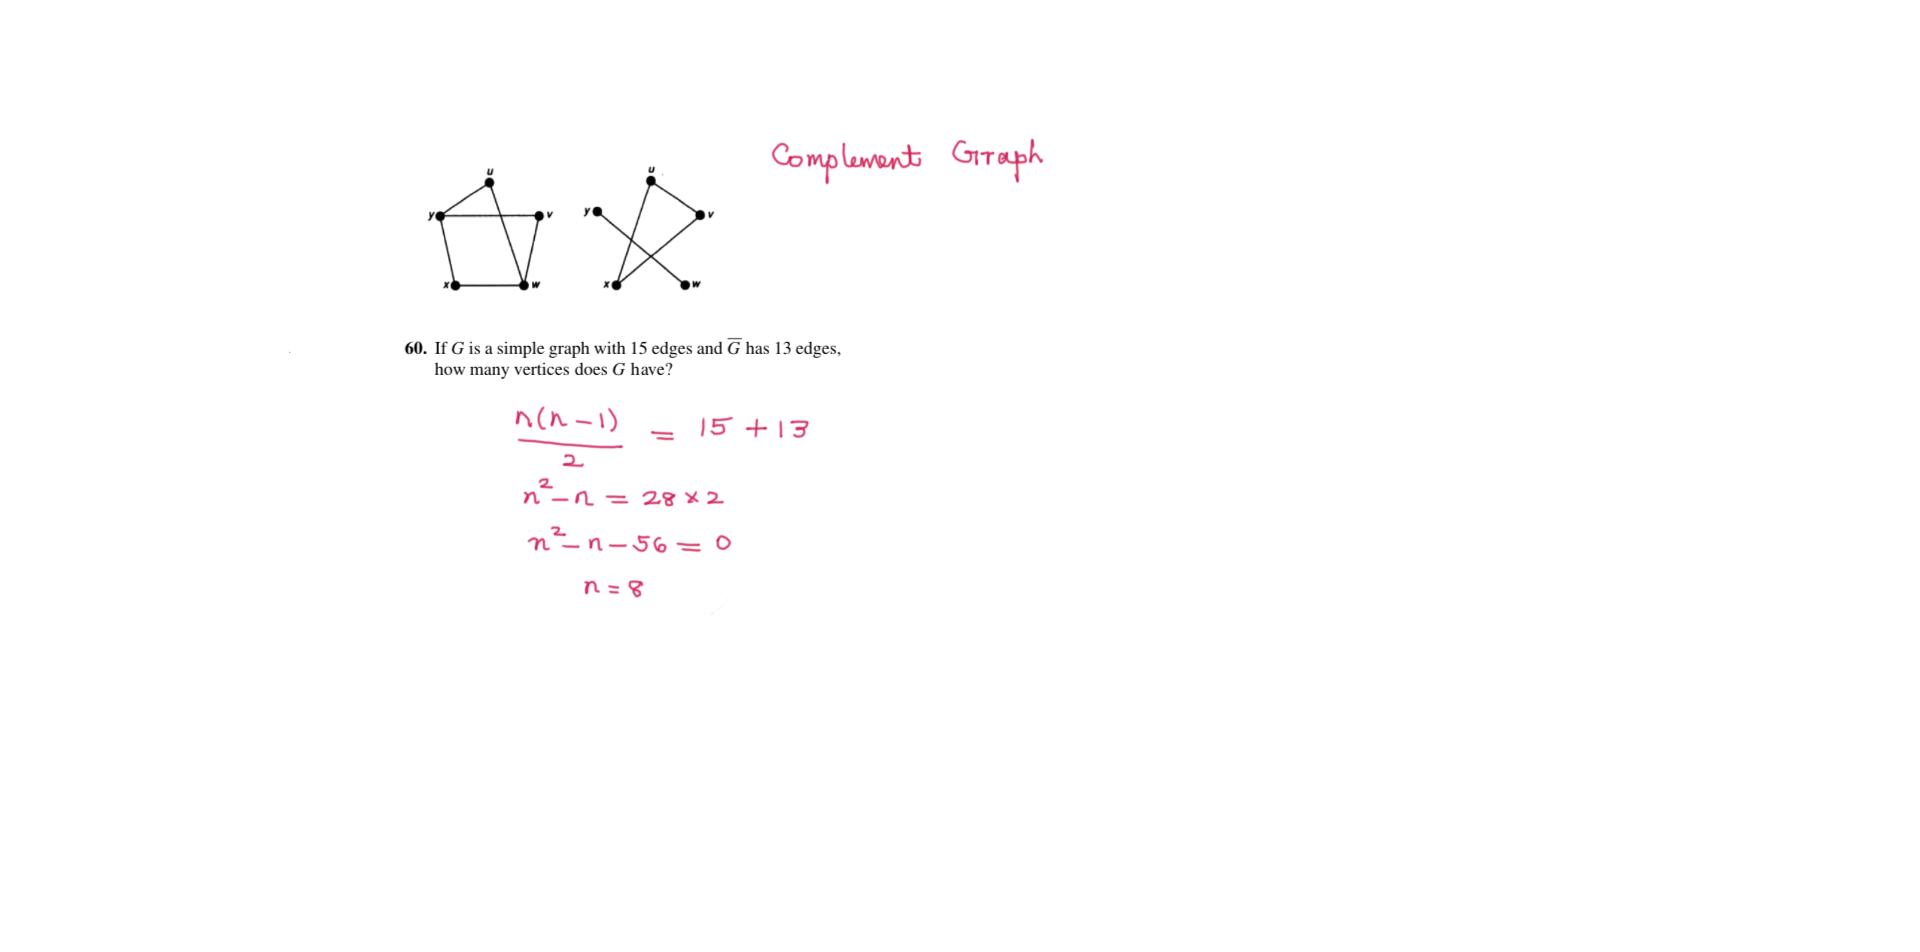 Complement Graph
u
u
y
v
y
v
x
w
x
w
60. If G is a simple graph with 15 edges and G̅ has 13 edges,
how many vertices does G have?
n(n-1)/2 = 15 + 13
n² - n = 28 × 2
n² - n - 56 = 0
n = 8